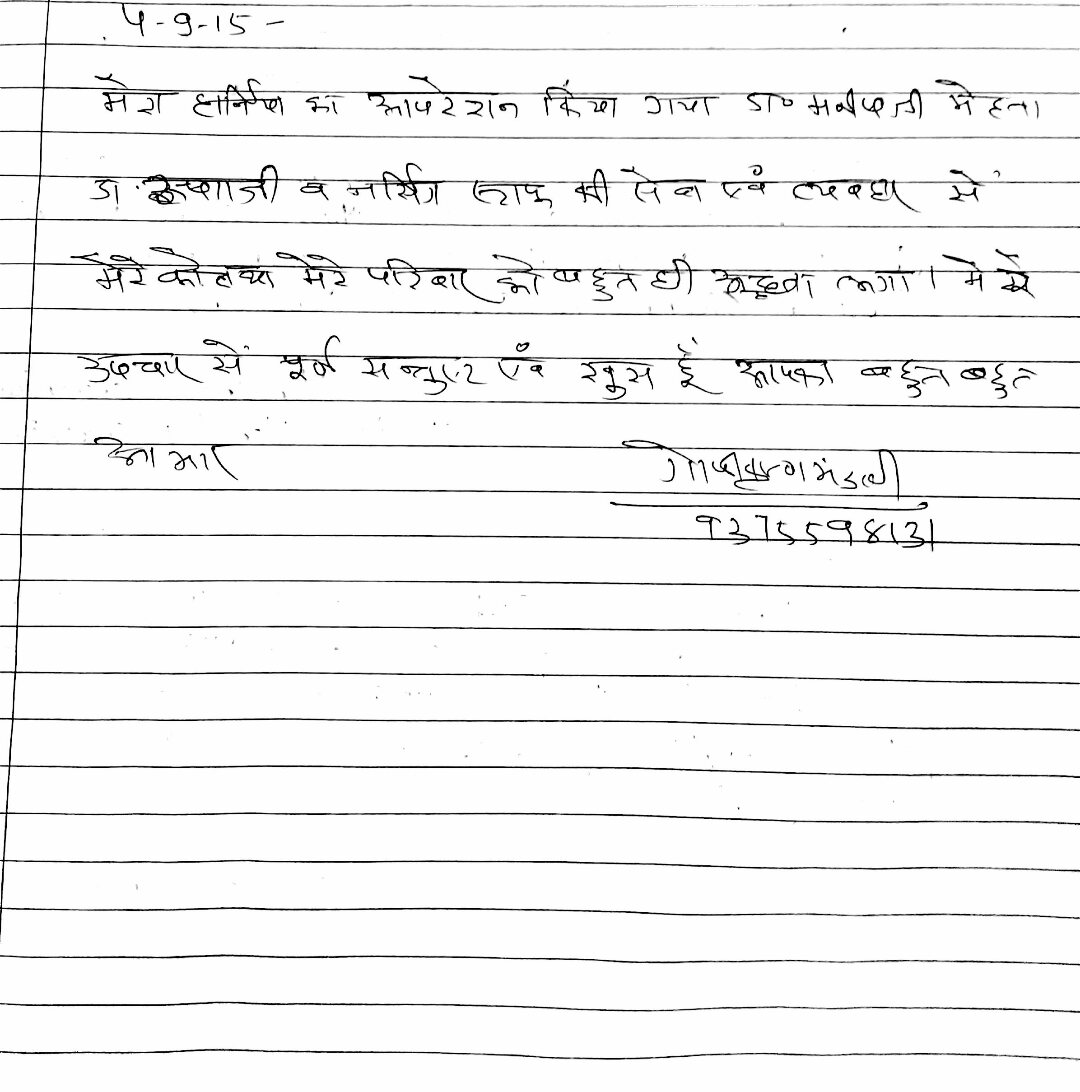 4-9-15 -
मेरा हार्निया का आपरेशन किया गया डा० मनीषजी मेहता
डा. जी व नर्सिग स्टाफ की सेवा एवं व्यवहार से
मेरे को तथा मेरे परिवार को बहुत ही अच्छा लगा। मे
उपचार से पूर्ण सन्तुष्ट एंव खुस हूँ आपका बहुत बहुत
आभार
मंडली
9375598131